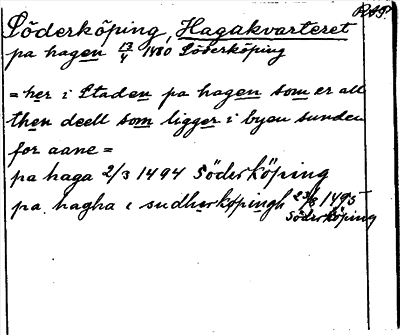 RAP.
Söderköping, Hagakvarteret
pa hagen 17/4 1480 Söderköping
= her i Staden pa hagen som er all
then deell som ligger i byen sunden
for aane =
pa haga 2/3 1494 Söderköping
pa hagha i sudherköpingh 23/3 1495
Söderköping